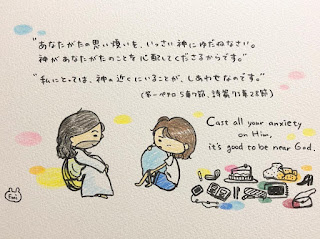 "あなたがたの思い煩いを、いっさい神にゆだねなさい。
神があなたがたのことを心配してくださるからです。"
"私にとっては、神の近くにいることが、しあわせなのです。"
(第一ペテロ 5章7節、詩篇73章28節)
Cast all your anxiety
on Him,
it's good to be near God.
Emi